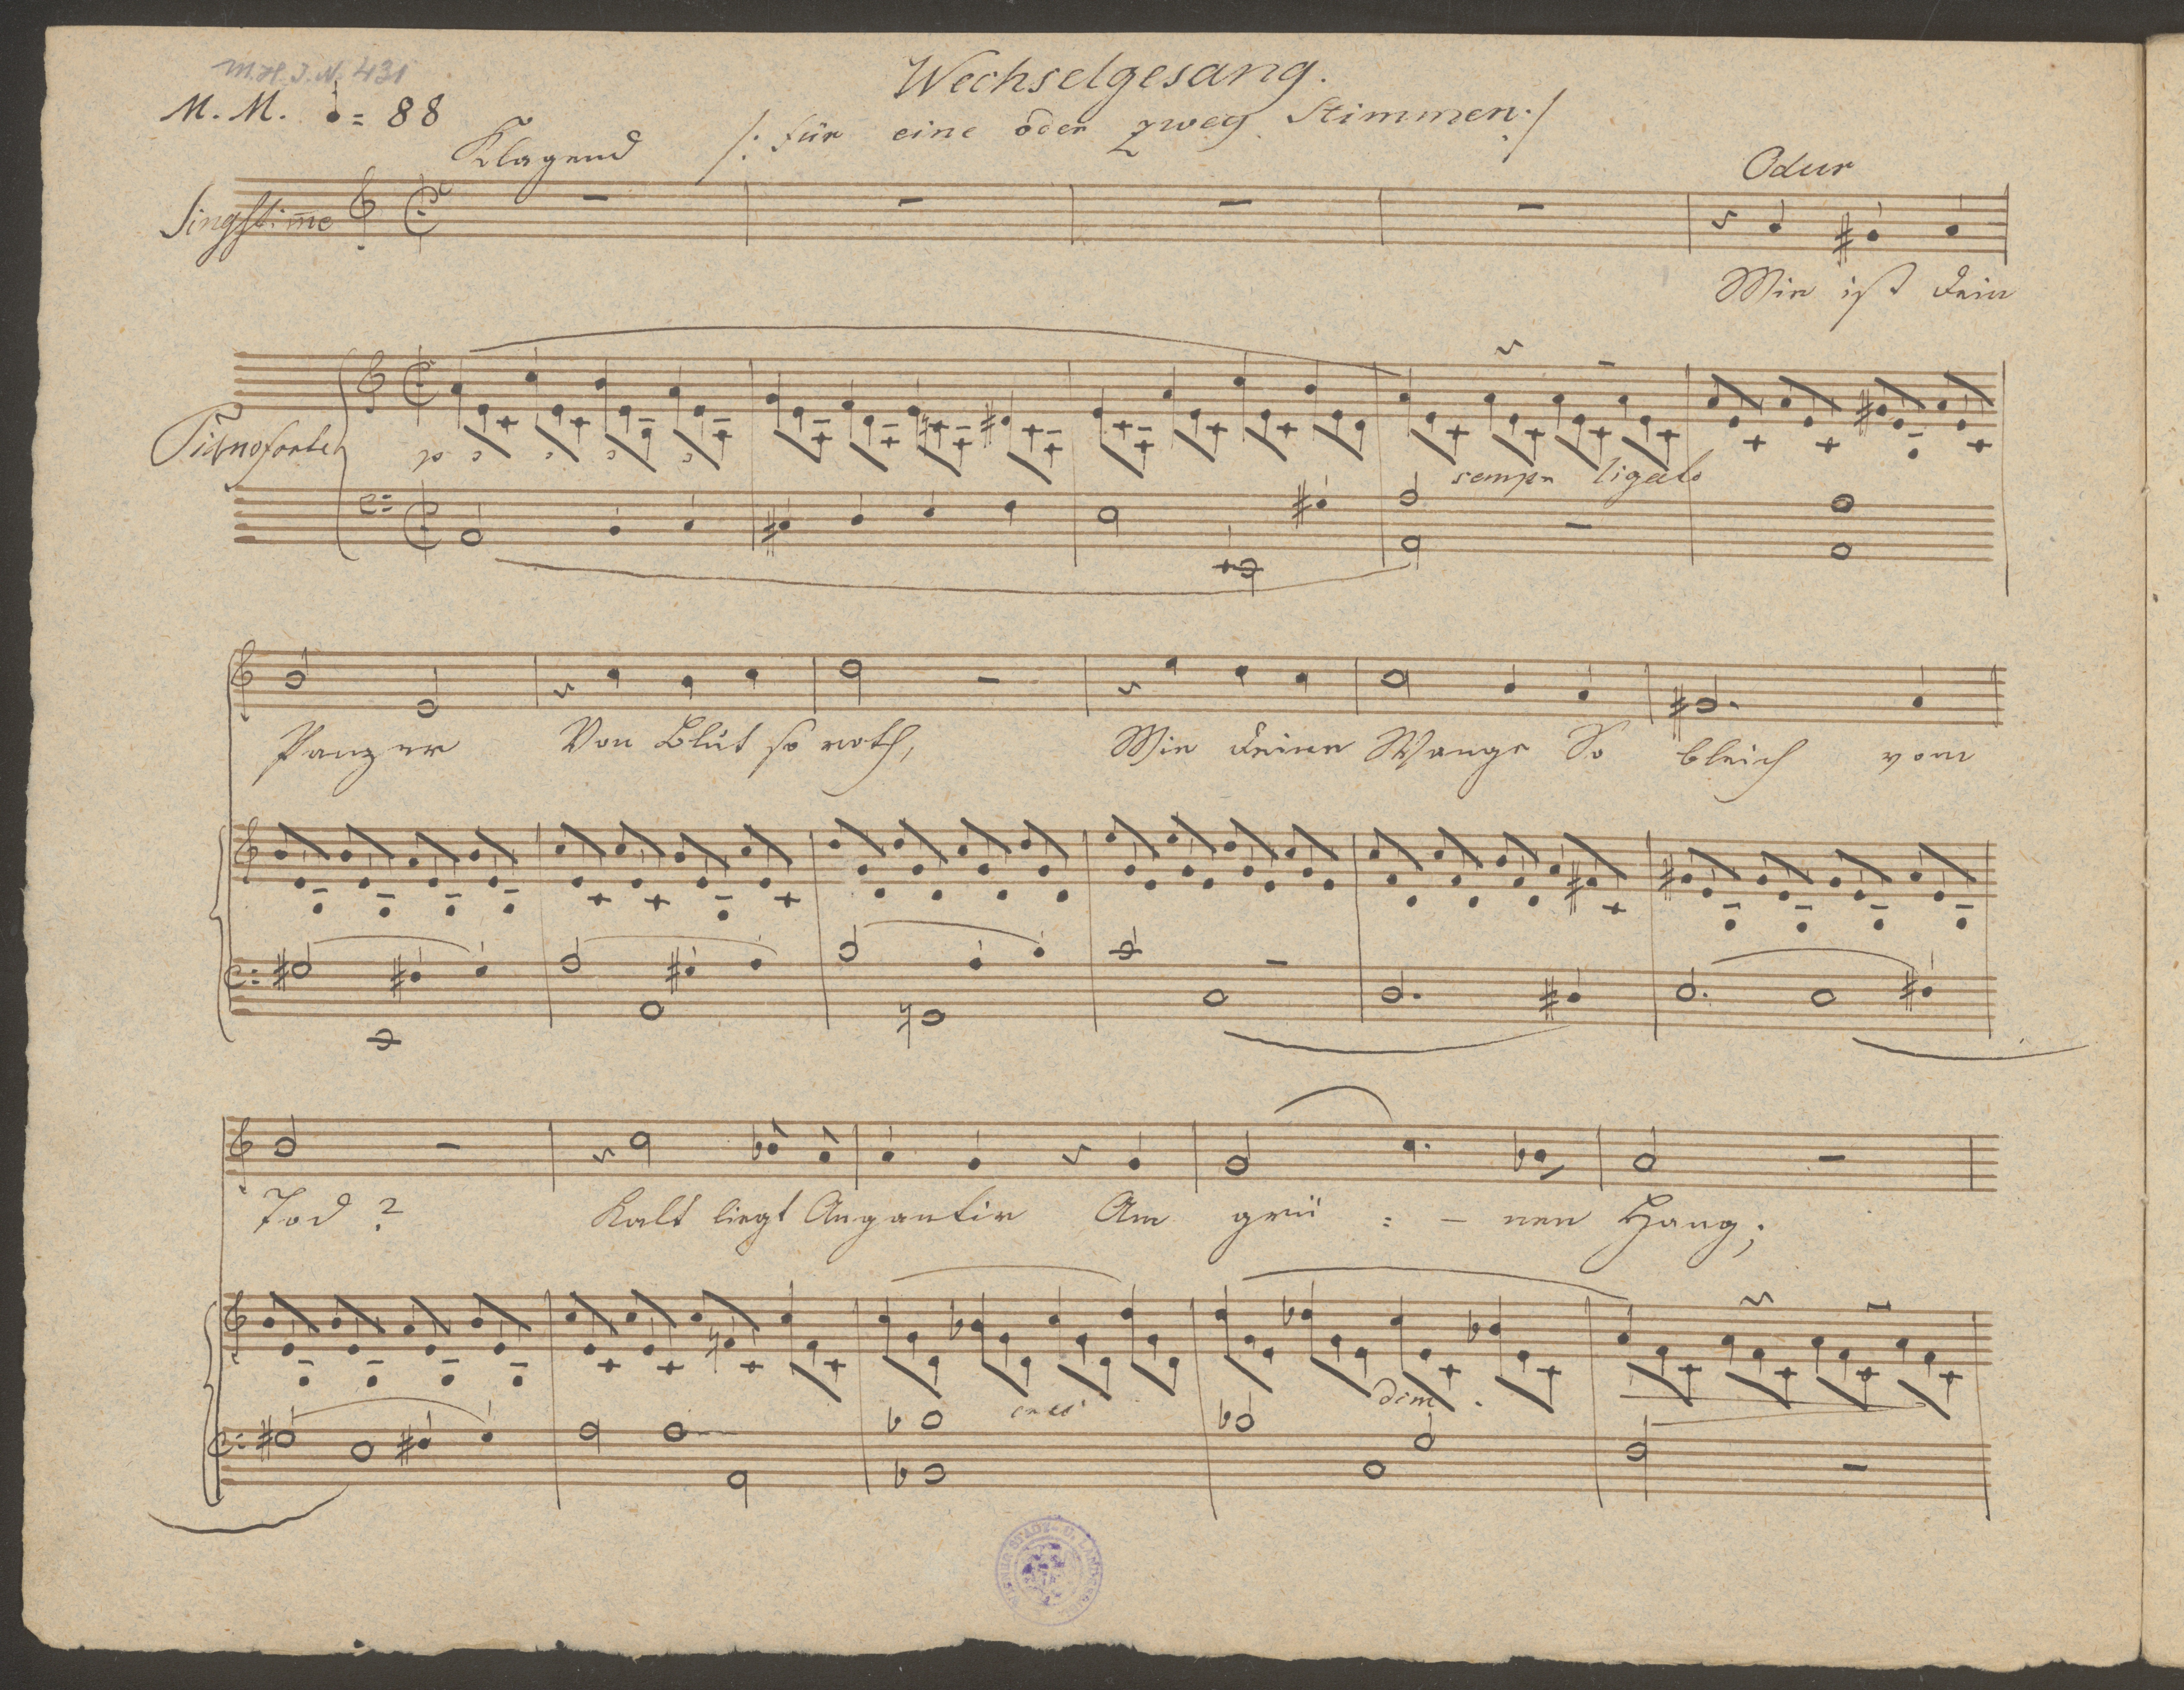 M.H.I.N. 431
Wechselgesang.
M. M. = 88
/: für eine oder zwey Stimmen :/
Klagend
Odur
Singstim̄e
Wie ist dein
Pianoforte
p 3 3 3 3
sempre ligato
Panzer Von Blut so roth, Wie deine Wange So bleich vom
Tod? Kalt liegt Angantir Am grü = - nen Hang;
cresc
dim.